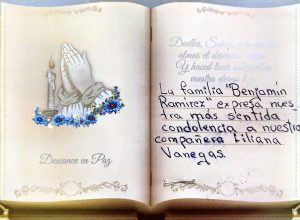 Descance en Paz
Dadles, Señor, a
almas el descanso
Y haced lucir
vuestra eterna
La familia "Benjamin
Ramirez" expresa nues
tra más sentida
condolencia a nuestra
compañera Liliana
Vanegas.